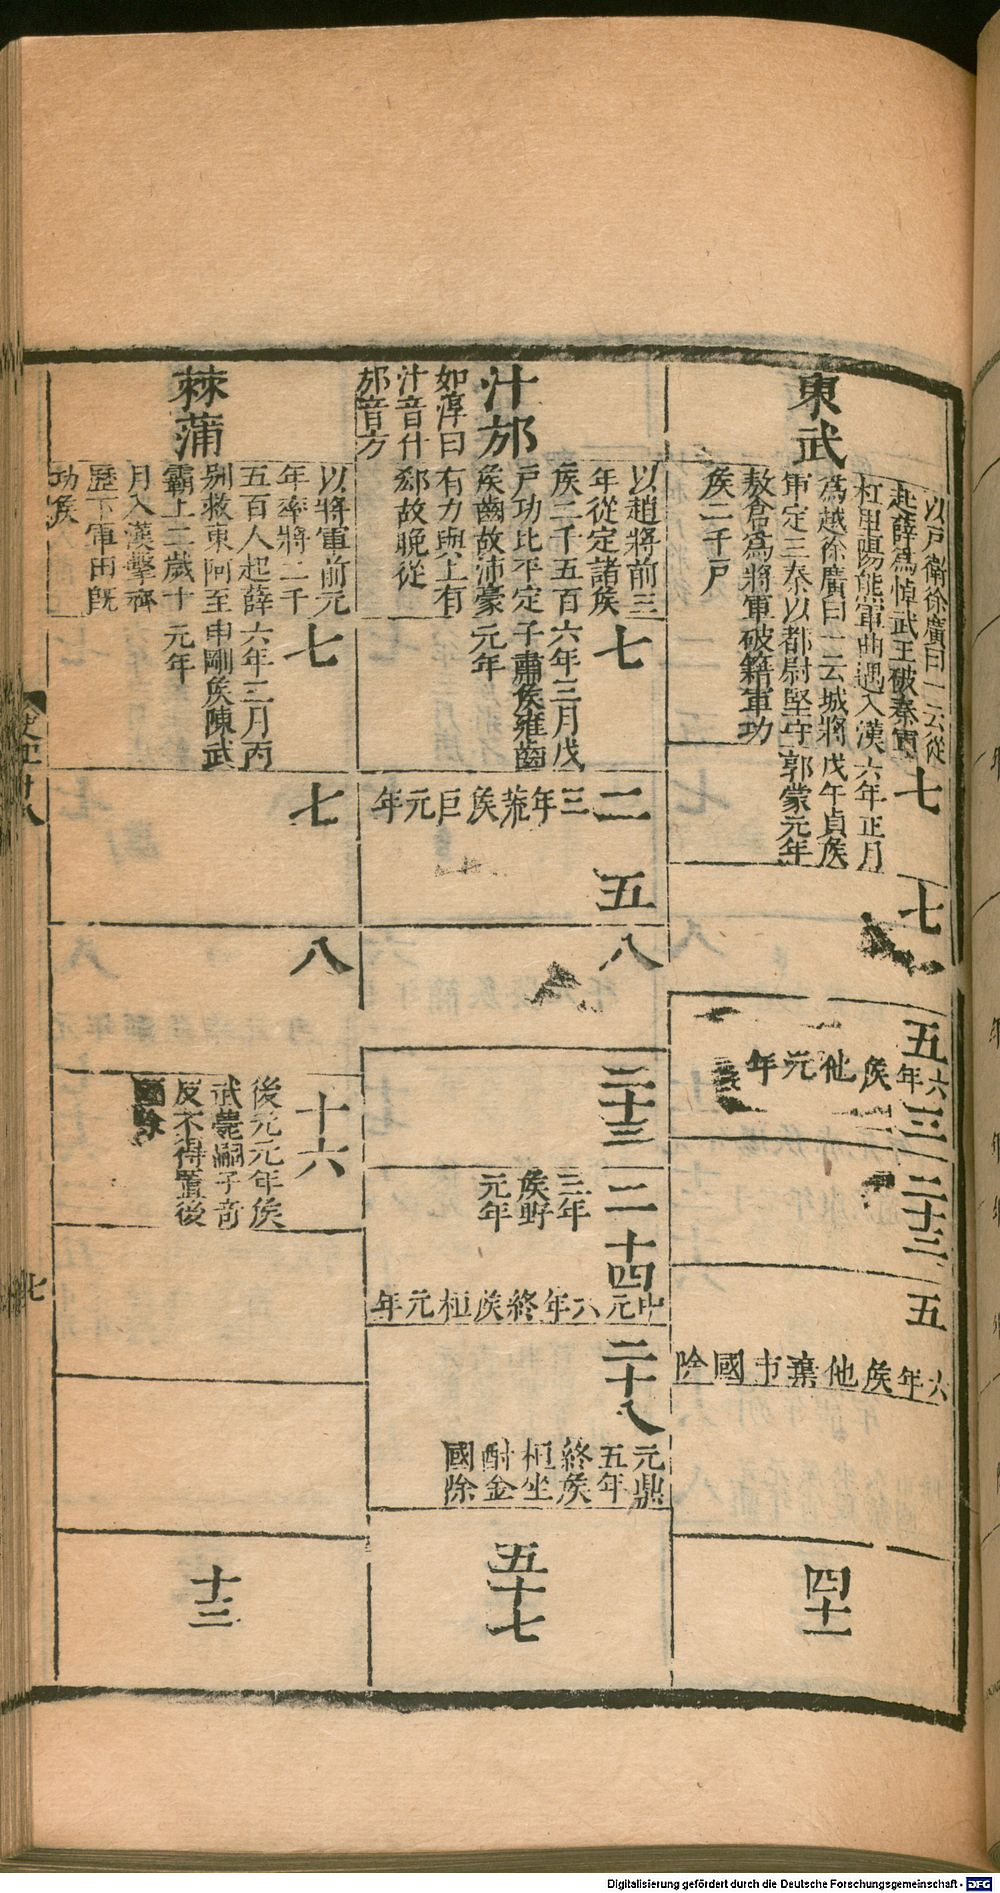 東武
以戶衛徐廣曰一云從
起薛爲悼武王破秦軍
杠里陽熊軍曲遇入漢
爲越徐廣曰一云城將
軍定三秦以都尉堅守
敖倉爲將軍破籍軍功
侯二千戶
七
六年正月
戊午貞侯
郭蒙元年
七
五
六年侯他元年
三
二十三
五
六年侯他棄市國除
四十一
汁邡
如淳曰
汁音什
邡音方
以趙將前三
年從定諸侯
侯二千五百
戶功比平定
侯齒故沛豪
有力與上有
郄故晚從
七
六年三月戊
子肅侯雍齒
元年
二
三年荒侯巨元年
五
八
二十三
二
三年
侯野
元年
十四
中元六年終侯桓元年
二十八
元鼎
五年
終侯
桓坐
酎金
國除
五十七
棘蒲
以將軍前元
年率將二千
五百人起薛
別救東阿至
霸上二歲十
月入漢擊齊
歷下軍田旣
功侯
七
六年三月丙
申剛侯陳武
元年
七
八
十六
後元元年侯
武薨嗣子奇
反不得置後
國除
十三
史記十八
七
Digitalisierung gefördert durch die Deutsche Forschungsgemeinschaft - DFG